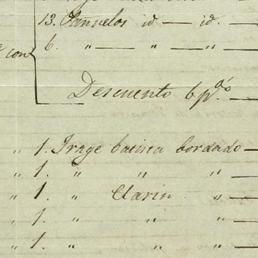 13. Pañuelos id — id.
6. " — " —
con
Descuento 6 p% —
" 1. Trage batista bordado —
" 1. " " " —
" 1. " Clarin s —
" 1. " " " —
" 1. " " " —